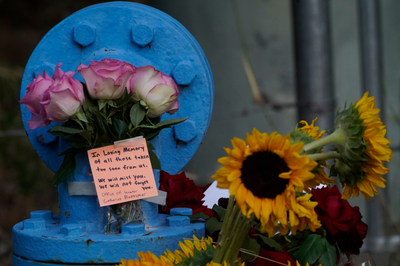 In Loving Memory
of all those taken
too soon from us.
We will miss you,
We will not forget you.
Office of